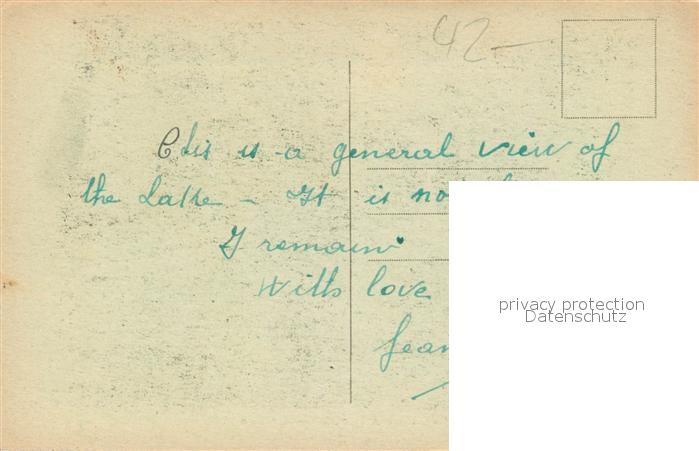 42 –
This is a general view of
the Latte – It is no
I remain
With love
Jean
privacy protection
Datenschutz